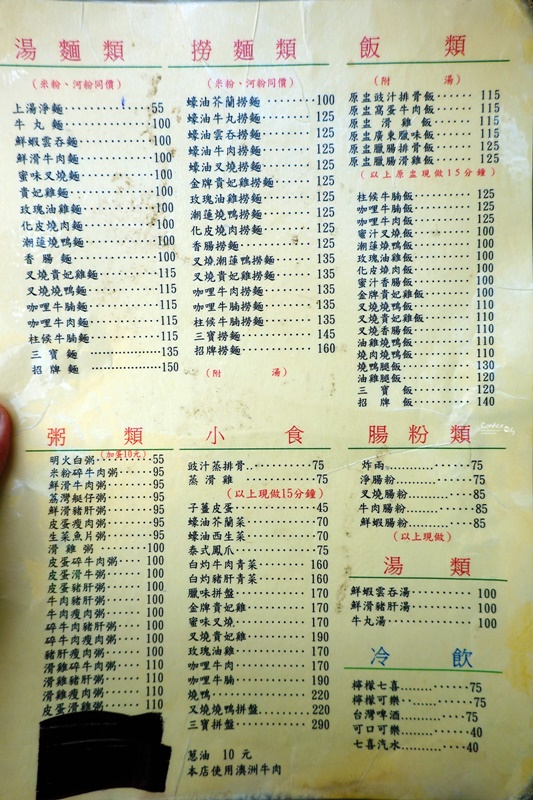 湯麵類
(米粉、河粉同價)
上湯淨麵 55
牛丸麵 100
鮮蝦雲吞麵 100
鮮滑牛肉麵 100
蜜味叉燒麵 100
貴妃雞麵 100
玫瑰油雞麵 100
化皮燒肉麵 100
潮蓮燒鴨麵 100
香腸麵 100
叉燒貴妃雞麵 115
叉燒燒鴨麵 115
咖哩牛腩麵 115
咖哩牛肉麵 115
柱候牛腩麵 115
三寶麵 135
招牌麵 150
撈麵類
(米粉、河粉同價)
蠔油芥蘭撈麵 100
蠔油牛丸撈麵 125
蠔油雲吞撈麵 125
蠔油牛肉撈麵 125
蠔油叉燒撈麵 125
金牌貴妃雞撈麵 125
玫瑰油雞撈麵 125
潮蓮燒鴨撈麵 125
化皮燒肉撈麵 125
香腸撈麵 125
叉燒潮蓮燒鴨撈麵 135
叉燒貴妃雞撈麵 135
咖哩牛肉撈麵 135
咖哩牛腩撈麵 135
柱候牛腩撈麵 135
三寶撈麵 145
招牌撈麵 160
(附湯)
飯類
(附湯)
原盅豉汁排骨飯 115
原盅窩蛋牛肉飯 115
原盅滑雞飯 115
原盅廣東臘味飯 115
原盅臘腸排骨飯 125
原盅臘腸滑雞飯 125
(以上原盅現做15分鐘)
柱候牛腩飯 125
咖哩牛腩飯 125
咖哩牛肉飯 125
蜜汁叉燒飯 100
潮蓮燒鴨飯 100
玫瑰油雞飯 100
化皮燒肉飯 100
蜜汁香腸飯 100
金牌貴妃雞飯 100
叉燒燒鴨飯 110
叉燒貴妃雞飯 110
叉燒香腸飯 110
油雞燒鴨飯 110
燒肉燒鴨飯 110
燒鴨腿飯 130
油雞腿飯 120
三寶飯 120
招牌飯 140
粥類
(加蛋10元)
明火白粥 55
米粉碎牛肉粥 95
鮮滑牛肉粥 95
荔灣艇仔粥 95
鮮滑豬肝粥 95
皮蛋瘦肉粥 95
生菜魚片粥 95
滑雞粥 100
皮蛋碎牛肉粥 100
皮蛋滑牛粥 100
皮蛋豬肝粥 100
牛肉豬肝粥 100
牛肉瘦肉粥 100
碎牛肉豬肝粥 100
碎牛肉瘦肉粥 100
豬肝瘦肉粥 100
滑雞碎牛肉粥 110
滑雞豬肝粥 110
滑雞瘦肉粥 110
皮蛋滑雞粥 110
小食
豉汁蒸排骨 75
蒸滑雞 75
(以上現做15分鐘)
子薑皮蛋 45
蠔油芥蘭菜 70
蠔油西生菜 70
泰式鳳爪 75
白灼牛肉青菜 160
白灼豬肝青菜 160
臘味拼盤 170
金牌貴妃雞 170
蜜味叉燒 170
叉燒貴妃雞 190
玫瑰油雞 170
咖哩牛肉 170
咖哩牛腩 190
燒鴨 220
叉燒燒鴨拼盤 220
三寶拼盤 290
蔥油 10元
本店使用澳洲牛肉
腸粉類
炸兩 75
淨腸粉 75
叉燒腸粉 85
牛肉腸粉 85
鮮蝦腸粉 85
(以上現做)
湯類
鮮蝦雲吞湯 100
鮮滑豬肝湯 100
牛丸湯 100
冷飲
檸檬七喜 75
檸檬可樂 75
台灣啤酒 75
可口可樂 40
七喜汽水 40